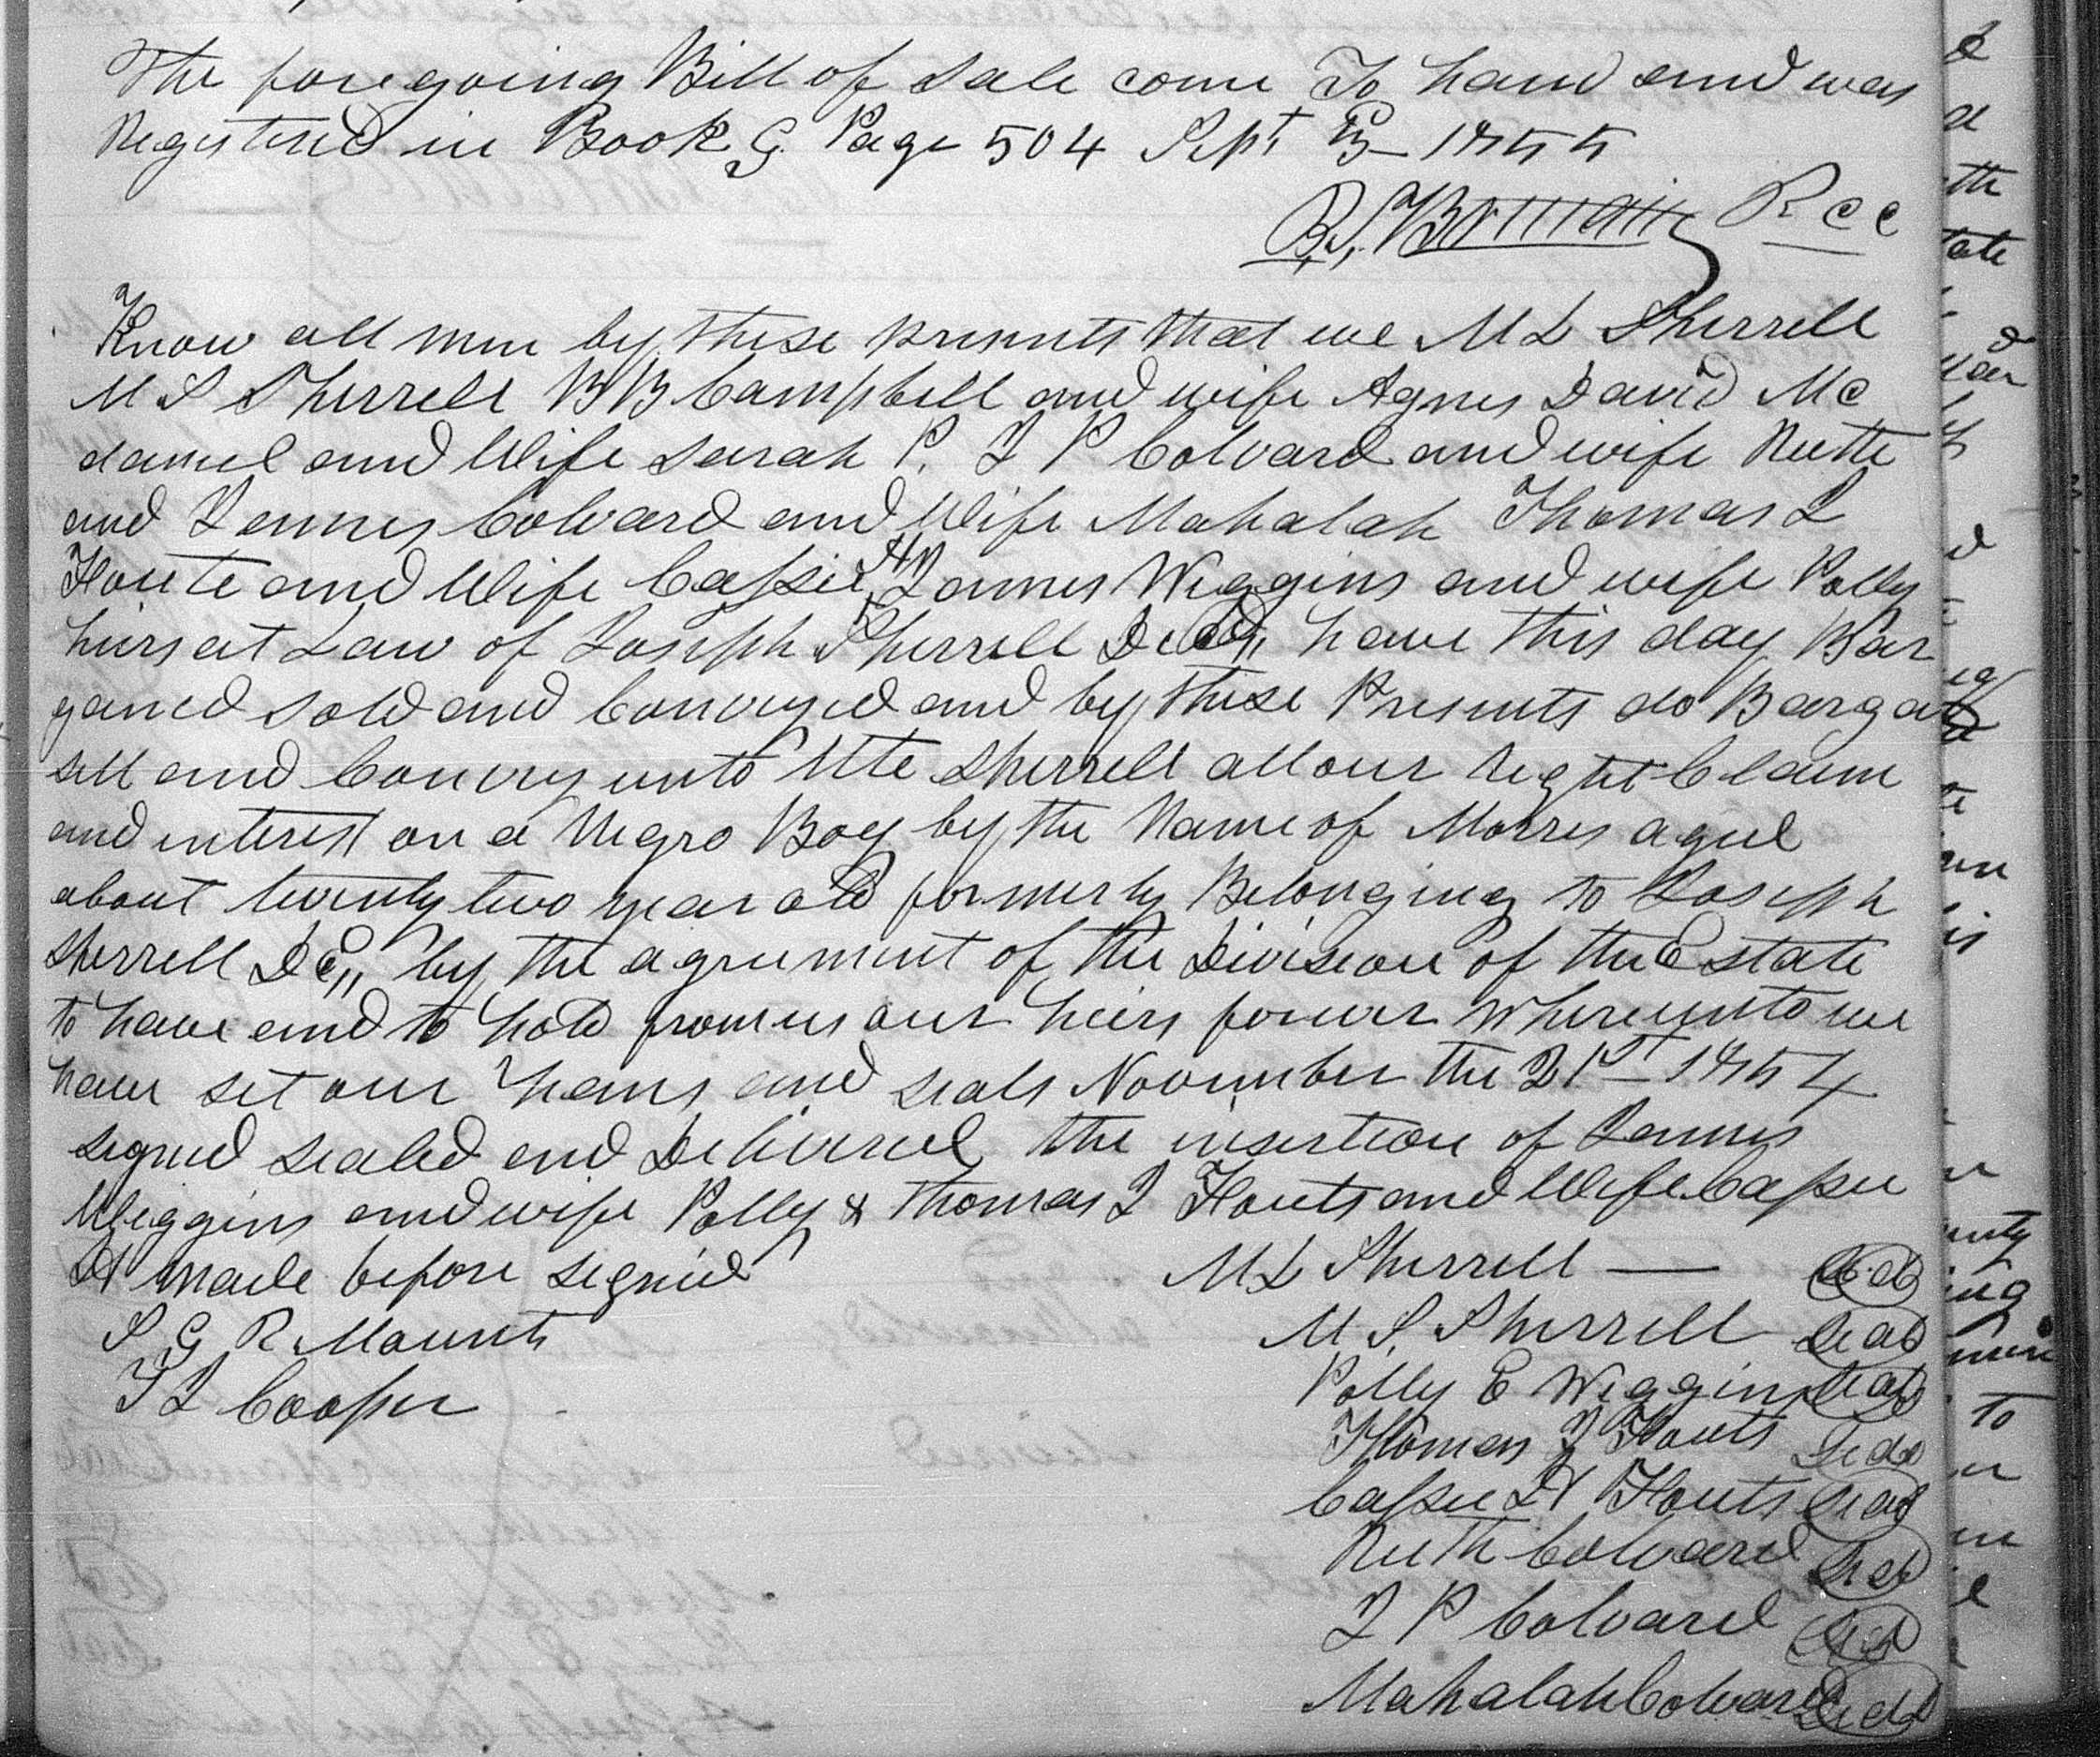 The foregoing Bill of Sale come To hand and was
Registered in Book G. Page 504 Sept 1855
Rec
Know all men by these presents that we M L Sherrell
M S Sherrell B B Campbell and wife Agnes David Mc
daniel and Wife Sarah P. J P Colvard and wife Ruth
and James Colvard and Wife Mahalah Thomas J
Houts and Wife Cassee H James Wiggins and wife Polly
heirs at Law of Joseph Sherrell Decd,, have this day Bar
gained sold and Conveyed and by these Presents do Bargan
sell and Convey unto Ute Sherrell all our right Claim
and interest on a Negro Boy by the Name of Morris aged
about twenty two year old formerly Belonging to Joseph
Sherrell De,, by the agreement of the Division of the Estate
to have and to hold from us our heirs forever Whereunto we
have set our hans and seals November the 21st 1854
signed sealed and Delivered the insertion of James
Wiggins and wife Polly & Thomas J Houts and Wife Cassee
H made before signed
M L Sherrell — Seal
S G R Mounts
M. S. Sherrell Seal
T J Cooper
Polly E Wiggins Seal
Thomas J Houts Seal
Cassee H Houts Seal
Ruth Colvard Seal
J P Colvard Seal
Mahalah Colvard Seal